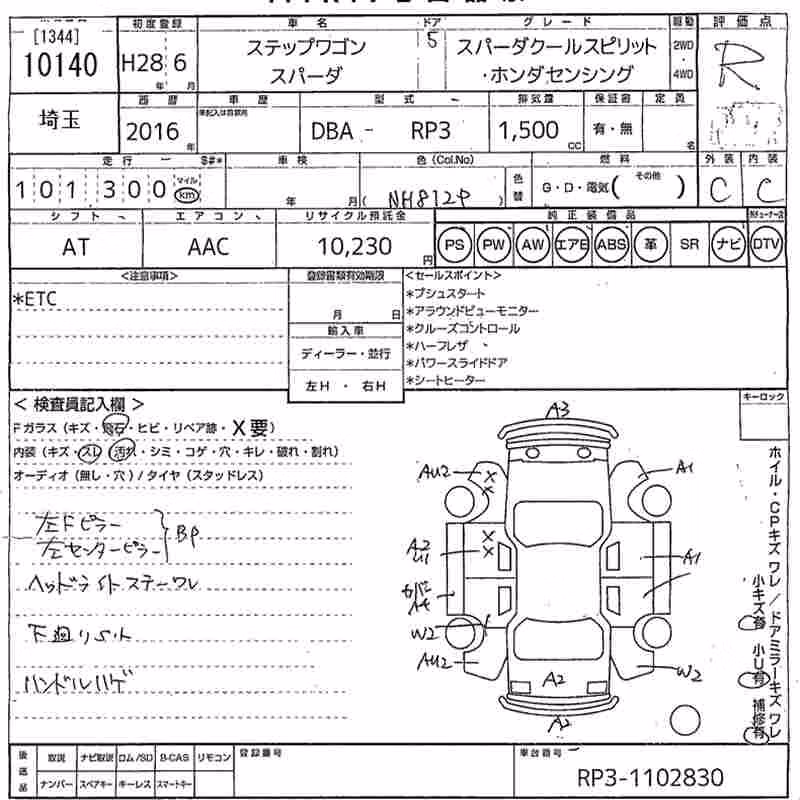 [1344]
10140
初度登録
H28 6
年 月
車名
ステップワゴン
スパーダ
ドア
5
グレード
スパーダクールスピリット
・ホンダセンシング
駆動
2WD
・
4WD
評価点
R
埼玉
西暦
2016 年
車歴
型式
DBA - RP3
排気量
1,500 CC
保証書
有・無
定員
名
外装
C
内装
C
走行
101300
マイル
km
車検
年 月
色 (Col.No)
( NH812P )
色替
燃料
G・D・電気 ( その他 )
シフト
AT
エアコン
AAC
リサイクル預託金
10,230 円
純正装備品
PS PW AW エアB ABS 革 SR ナビ DTV
<注意事項>
*ETC
登録書類有効期限
月 日
輸入車
ディーラー・並行
左H ・ 右H
<セールスポイント>
*プシュスタート
*アラウンドビューモニター
*クルーズコントロール
*ハーフレザ
*パワースライドドア
*シートヒーター
キーロック
< 検査員記入欄 >
Fガラス (キズ・飛石・ヒビ・リペア跡・X要)
内装 (キズ・スレ・汚れ・シミ・コゲ・穴・キレ・破れ・割れ)
オーディオ (無し・穴) / タイヤ (スタッドレス)
左Fピラー
左センターピラー
BP
ヘッドライトステーワレ
下廻りSAト
ハンドルハゲ
A3
AU2
X
X
A1
A2
U1
X
X
A1
カバー
A4
W2
AU2
W2
A2
A2
ホイル・CPキズ ワレ / ドアミラーキズ ワレ
小キズ有 小U有 補修有
後送品
取説 ナビ取説 ロム/SD B-CAS リモコン
ナンバー スペアキー キーレス スマートキー
登録番号
車台番号
RP3-1102830